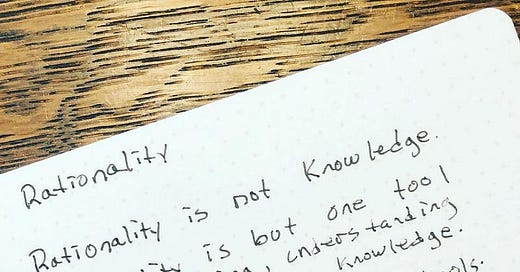 Rationality
Rationality is not Knowledge.
Rationality is but one tool
understanding
Knowledge.